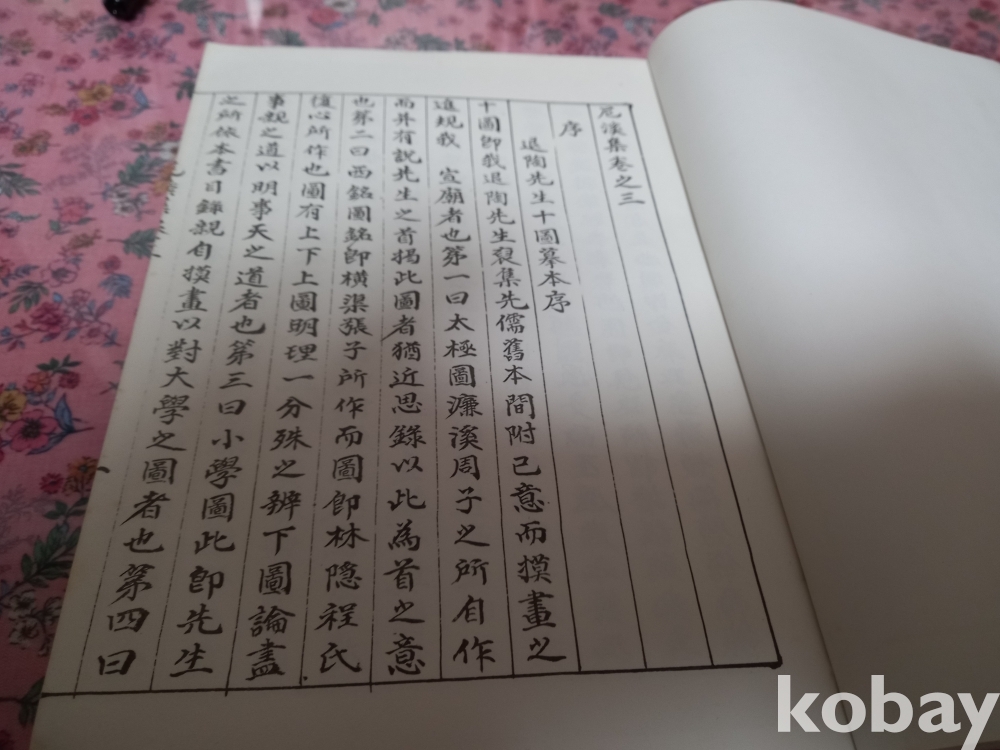 尼溪集卷之三
序
退陶先生十圖摹本序
十圖卽我退陶先生裒集先儒舊本間附己意而摸畫之
進規我 宣廟者也第一曰太極圖濂溪周子之所自作
而幷有說先生之首揭此圖者猶近思錄以此為首之意
也第二曰西銘圖銘卽橫渠張子所作而圖卽林隱程氏
復心所作也圖有上下上圖明理一分殊之辨下圖論盡
事親之道以明事天之道者也第三曰小學圖此卽先生
之所依本書目錄親自摸畫以對大學之圖者也第四曰
kobay